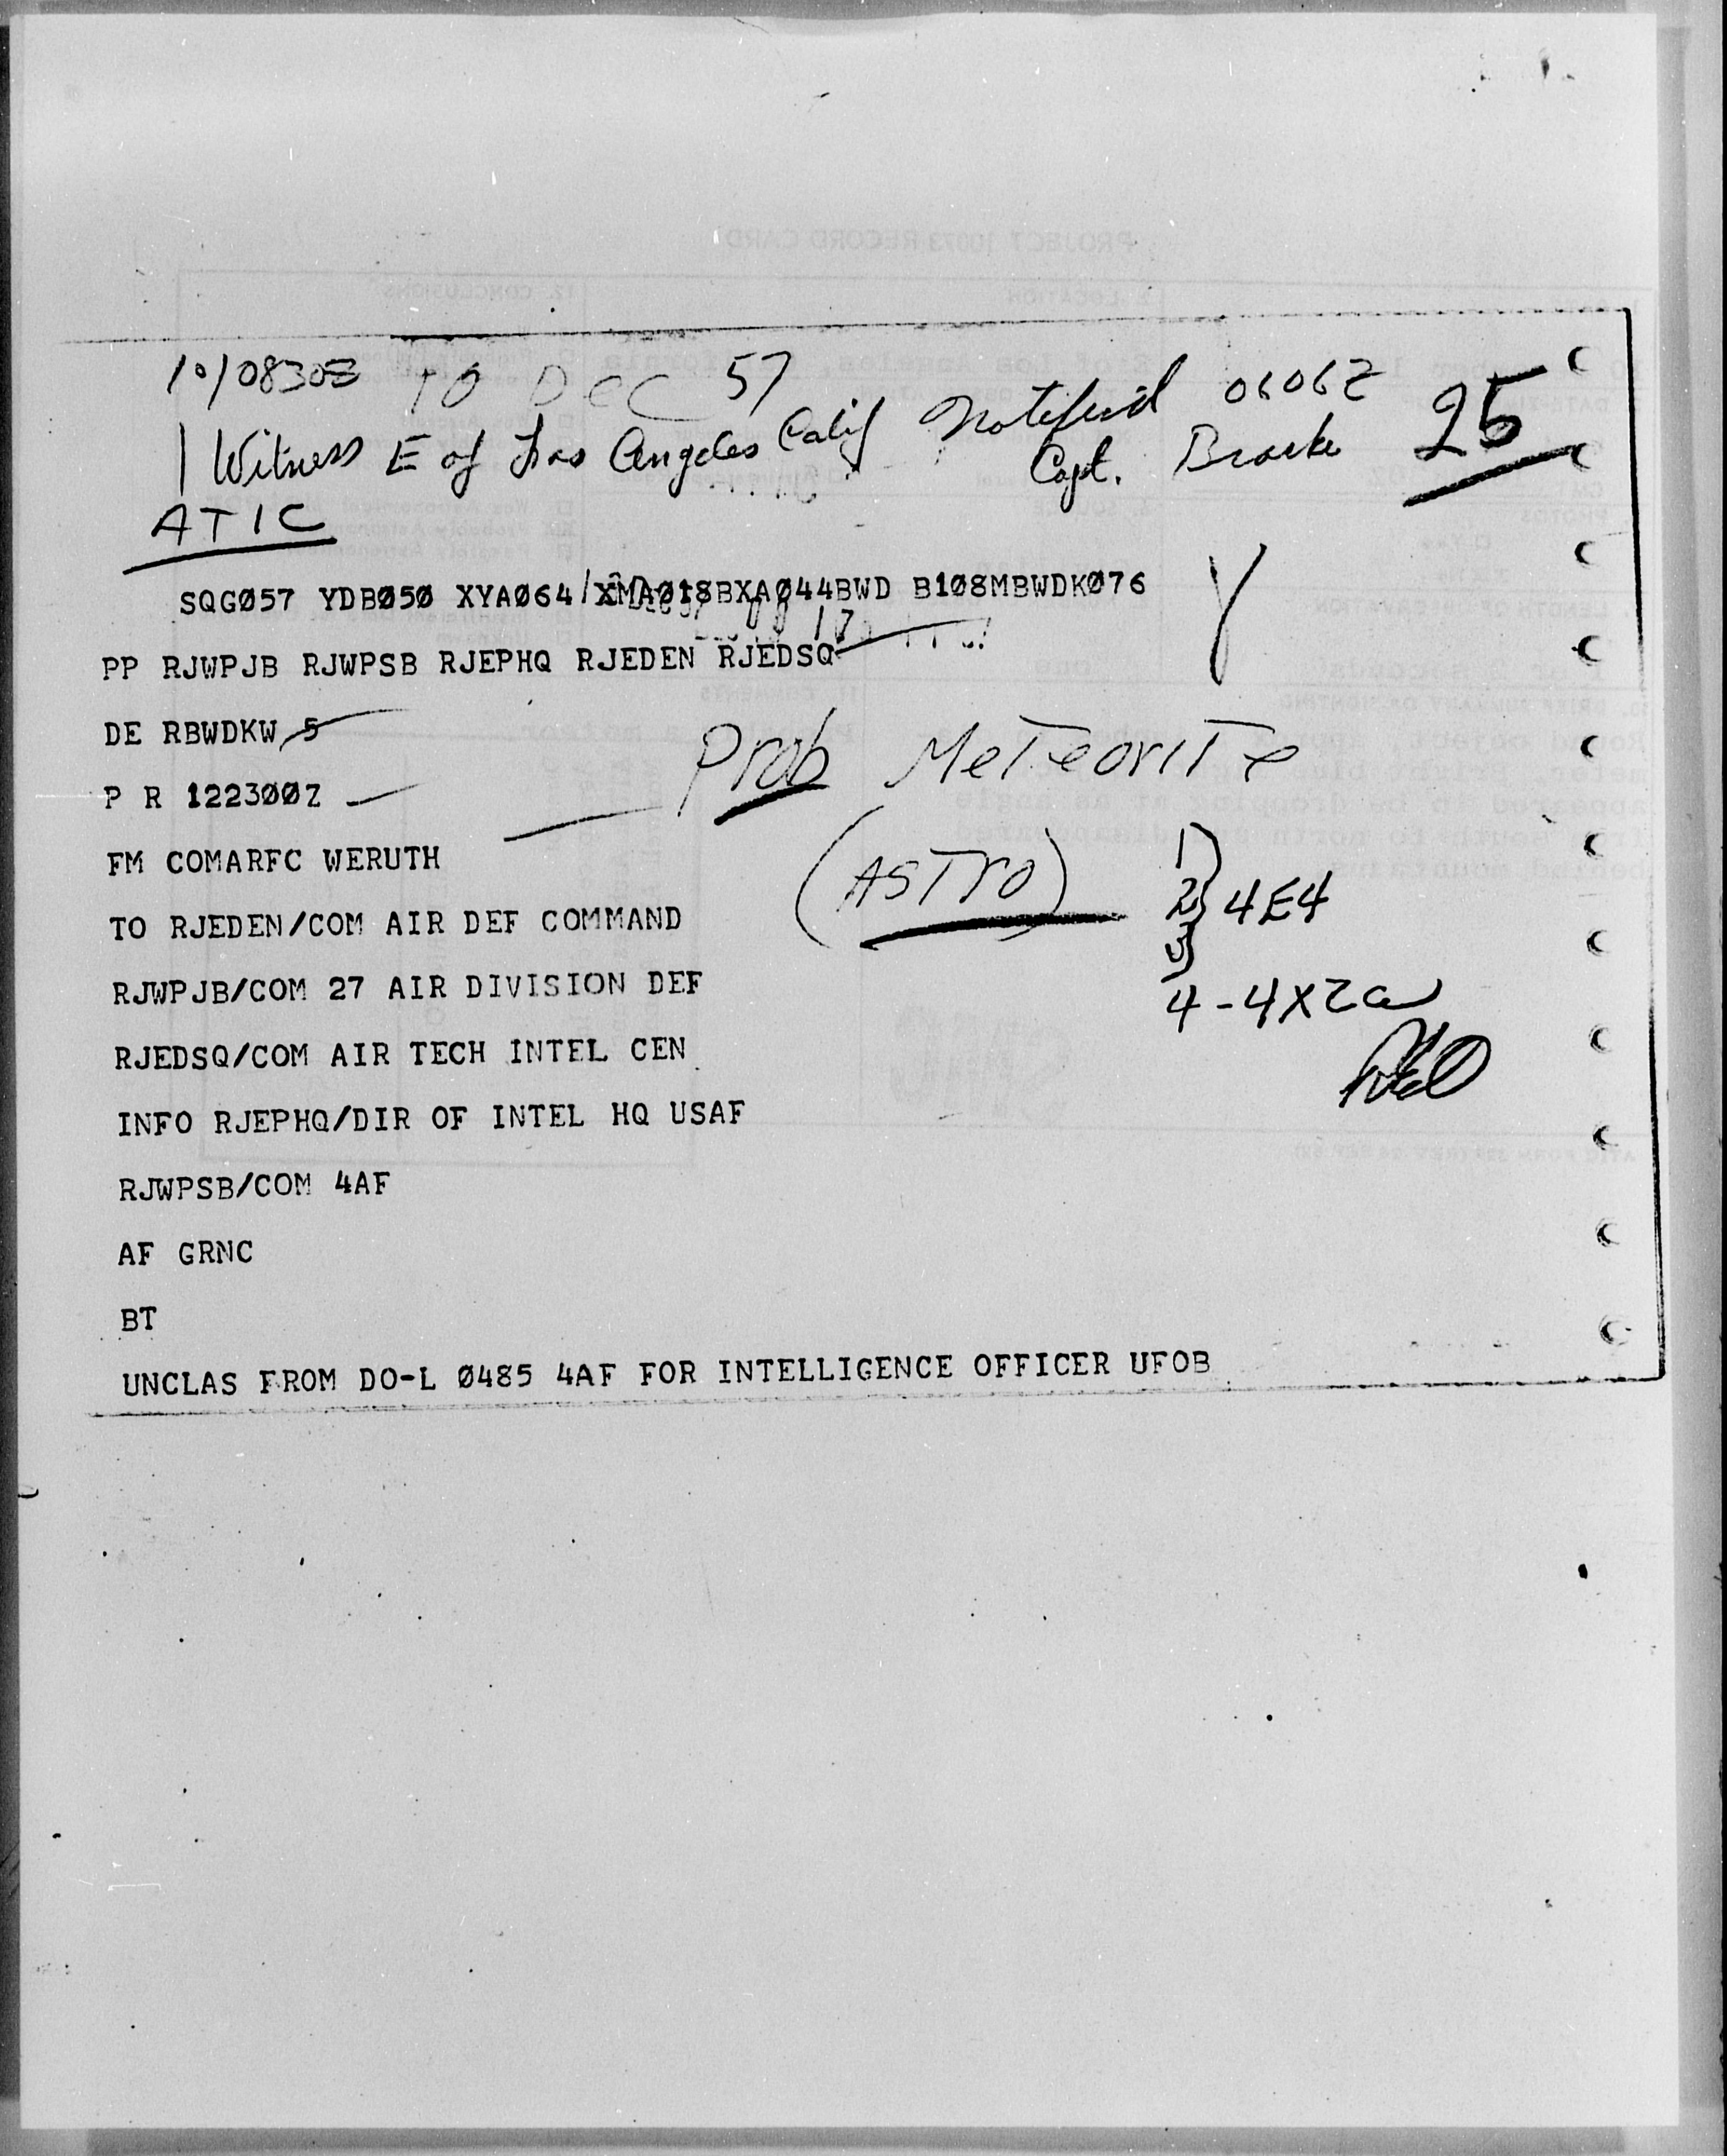 10/0830Z 10 DEC 57
1 Witness E of Los Angeles Calif Notified 0606Z
Capt. 25
ATIC
SQGØ57 YDBØ5Ø XYAØ64/XMAØ18BXAØ44BWD B108MBWDKØ76
PP RJWPJB RJWPSB RJEPHQ RJEDEN RJEDSQ
DE RBWDKW 5
P R 12230ØZ
Prob Meteorite
(ASTRO)
FM COMARFC WERUTH
TO RJEDEN/COM AIR DEF COMMAND
1)
2) 4E4
3)
4-4X2a
RJWPJB/COM 27 AIR DIVISION DEF
RJEDSQ/COM AIR TECH INTEL CEN
INFO RJEPHQ/DIR OF INTEL HQ USAF
RJWPSB/COM 4AF
AF GRNC
BT
UNCLAS FROM DO-L Ø485 4AF FOR INTELLIGENCE OFFICER UFOB